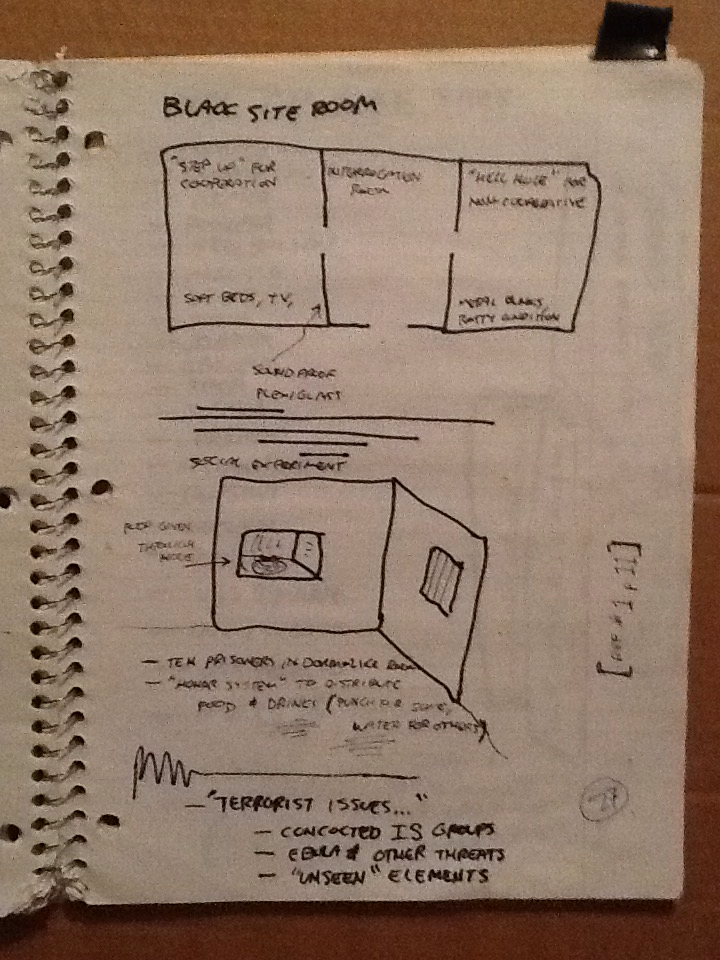 BLACK SITE ROOM
"STEP UP" FOR
COOPERATION
INTERROGATION
ROOM
"HELL HOLE" FOR
NON-COOPERATIVE
SOFT BEDS, TV,
METAL BUNKS,
RATTY CONDITION
SOUNDPROOF
PLEXIGLASS
SOCIAL EXPERIMENT
FOOD GIVEN
THROUGH
HOLE
— TEN PRISONERS IN DORM-LIKE ROOM
— "HONOR SYSTEM" TO DISTRIBUTE
FOOD & DRINKS (PUNCH FOR SOME,
WATER FOR OTHERS)
— "TERRORIST ISSUES..."
— CONCOCTED IS GROUPS
— EBOLA & OTHER THREATS
— "UNSEEN" ELEMENTS